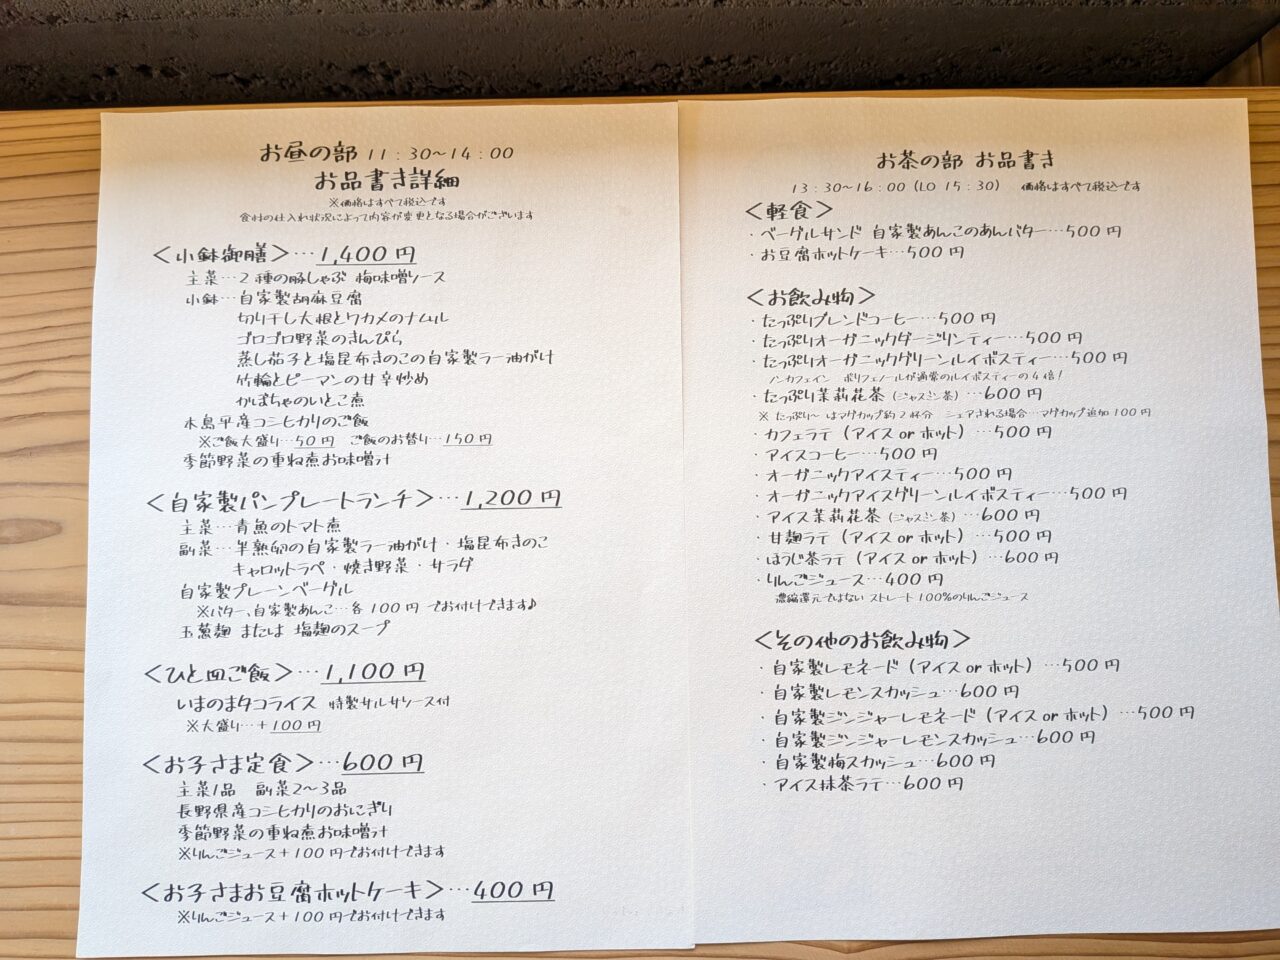 お昼の部 11:30～14:00
お品書き詳細
※価格はすべて税込です
食材の仕入れ状況によって内容が変更となる場合がございます
＜小鉢御膳＞…1,400円
主菜…2種の豚しゃぶ 梅味噌ソース
小鉢…自家製胡麻豆腐
切り干し大根とワカメのナムル
ゴロゴロ野菜のきんぴら
蒸し茄子と塩昆布きのこの自家製ラー油がけ
竹輪とピーマンの甘辛炒め
かぼちゃのいとこ煮
木島平産コシヒカリのご飯
※ご飯大盛り…50円 ご飯のお替り…150円
季節野菜の重ね煮お味噌汁
＜自家製パンプレートランチ＞…1,200円
主菜…青魚のトマト煮
副菜…半熟卵の自家製ラー油がけ・塩昆布きのこ
キャロットラペ・焼き野菜・サラダ
自家製プレーンベーグル
※バター、自家製あんこ…各100円でお付けできます♪
玉葱麹 または 塩麹のスープ
＜ひと皿ご飯＞…1,100円
いまのまタコライス 特製サルサソース付
※大盛り…＋100円
＜お子さま定食＞…600円
主菜1品 副菜2～3品
長野県産コシヒカリのおにぎり
季節野菜の重ね煮お味噌汁
※りんごジュース＋100円でお付けできます
＜お子さまお豆腐ホットケーキ＞…400円
※りんごジュース＋100円でお付けできます
お茶の部 お品書き
13:30～16:00（LO 15:30） 価格はすべて税込です
＜軽食＞
・ベーグルサンド 自家製あんこのあんバター…500円
・お豆腐ホットケーキ…500円
＜お飲み物＞
・たっぷりブレンドコーヒー…500円
・たっぷりオーガニックダージリンティー…500円
・たっぷりオーガニックグリーンルイボスティー…500円
ノンカフェイン ポリフェノールが通常のルイボスティーの4倍！
・たっぷり茉莉花茶（ジャスミン茶）…600円
※ たっぷり～はマグカップ約2杯分 シェアされる場合…マグカップ追加100円
・カフェラテ（アイスorホット）…500円
・アイスコーヒー…500円
・オーガニックアイスティー…500円
・オーガニックアイスグリーンルイボスティー…500円
・アイス茉莉花茶（ジャスミン茶）…600円
・甘麹ラテ（アイスorホット）…500円
・ほうじ茶ラテ（アイスorホット）…600円
・りんごジュース…400円
濃縮還元ではない ストレート100％のりんごジュース
＜その他のお飲み物＞
・自家製レモネード（アイスorホット）…500円
・自家製レモンスカッシュ…600円
・自家製ジンジャーレモネード（アイスorホット）…500円
・自家製ジンジャーレモンスカッシュ…600円
・自家製梅スカッシュ…600円
・アイス抹茶ラテ…600円